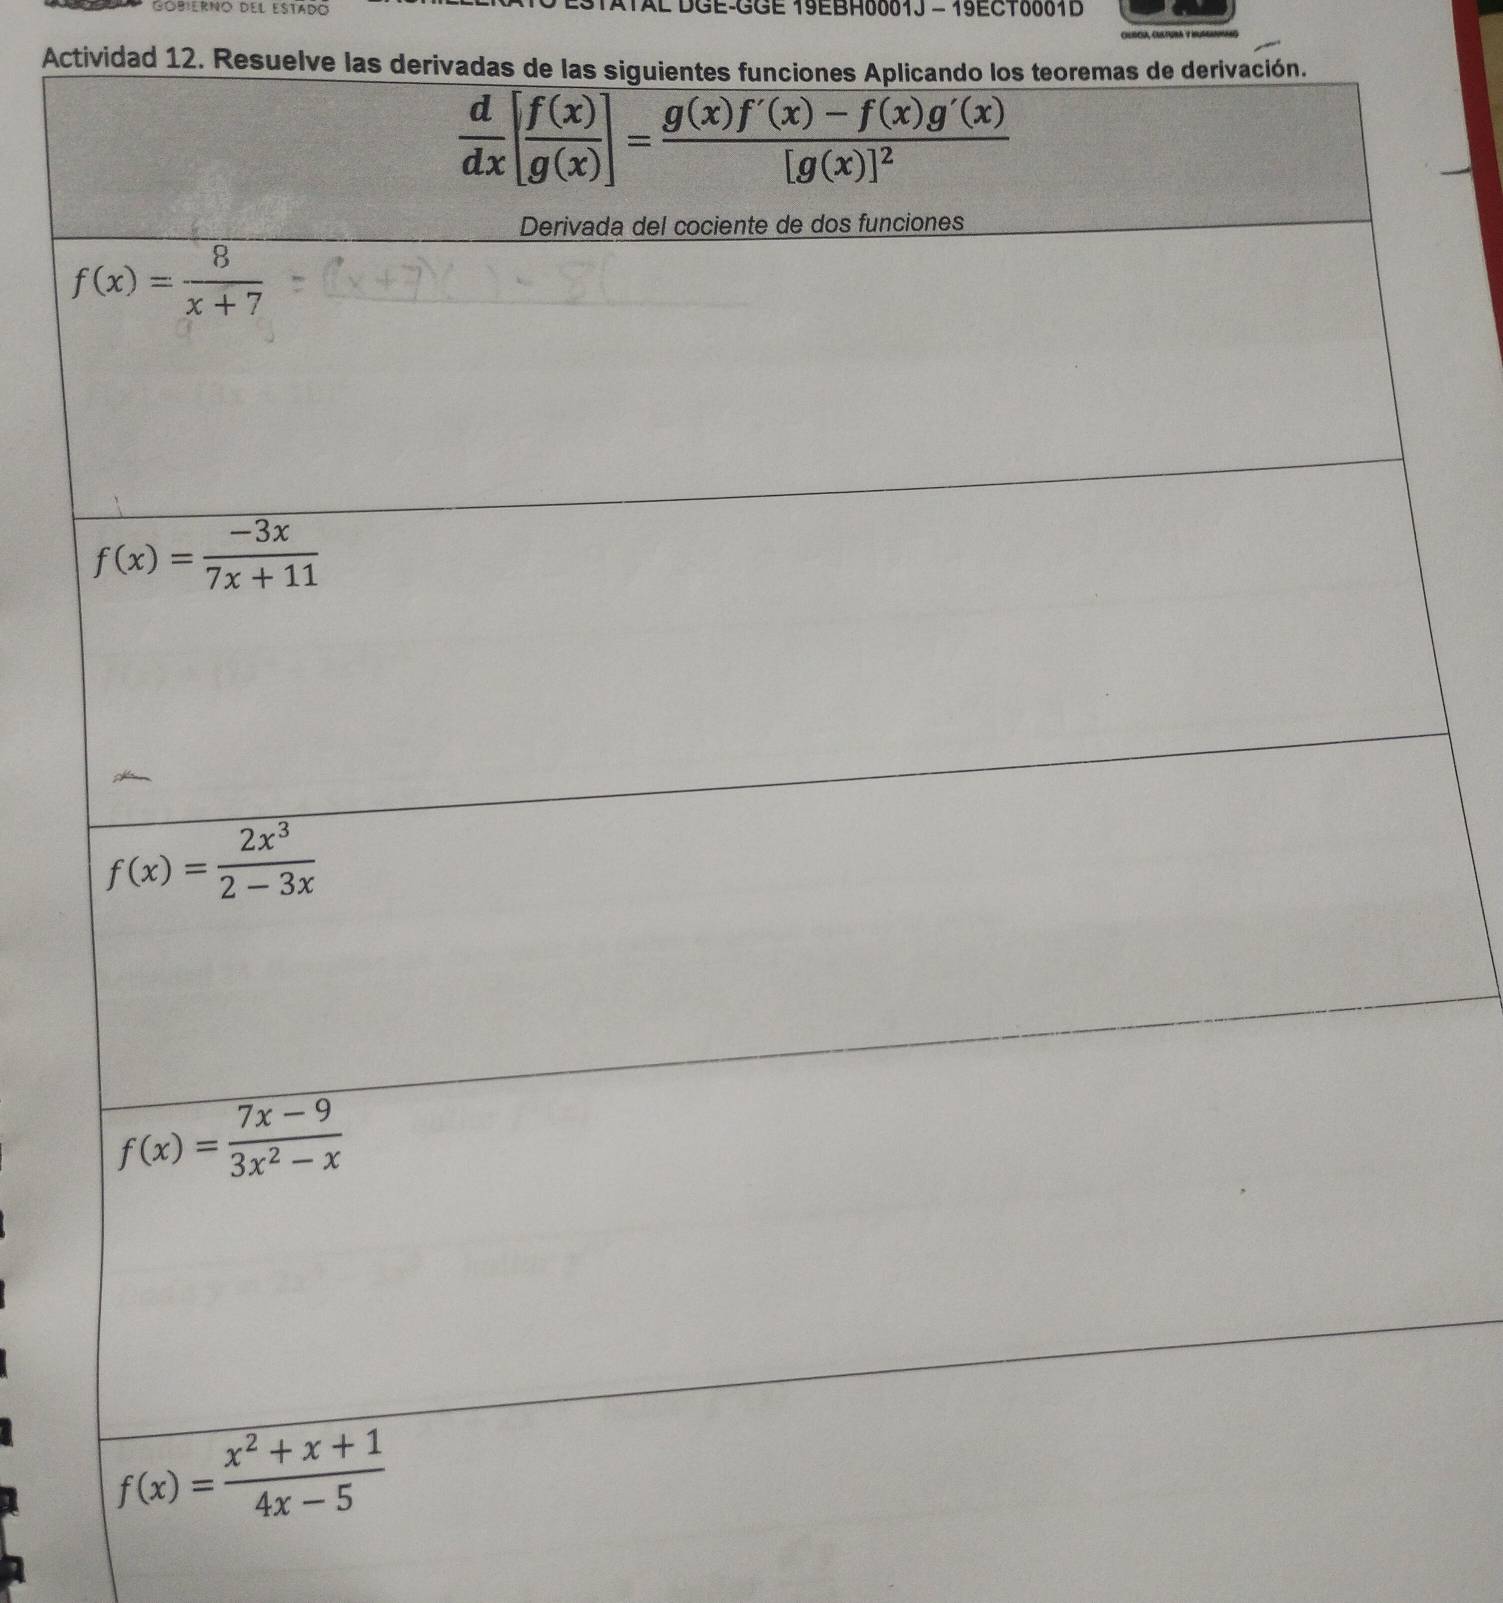 GOBIERNO DEL ESTADO
ESTATAL DGE-GGE 19EBH0001J - 19ECT0001D
CIENCIA, CULTURA Y HUMANISMO
Actividad 12. Resuelve las derivadas de las siguientes funciones Aplicando los teoremas de derivación.
d/dx [f(x)/g(x)] = (g(x)f´(x) − f(x)g´(x))/[g(x)]²
Derivada del cociente de dos funciones
f(x) = 8/(x + 7) = (x+7)( ) - 8(
f(x) = −3x/(7x + 11)
f(x) = 2x³/(2 − 3x)
f(x) = (7x − 9)/(3x² − x)
f(x) = (x² + x + 1)/(4x − 5)